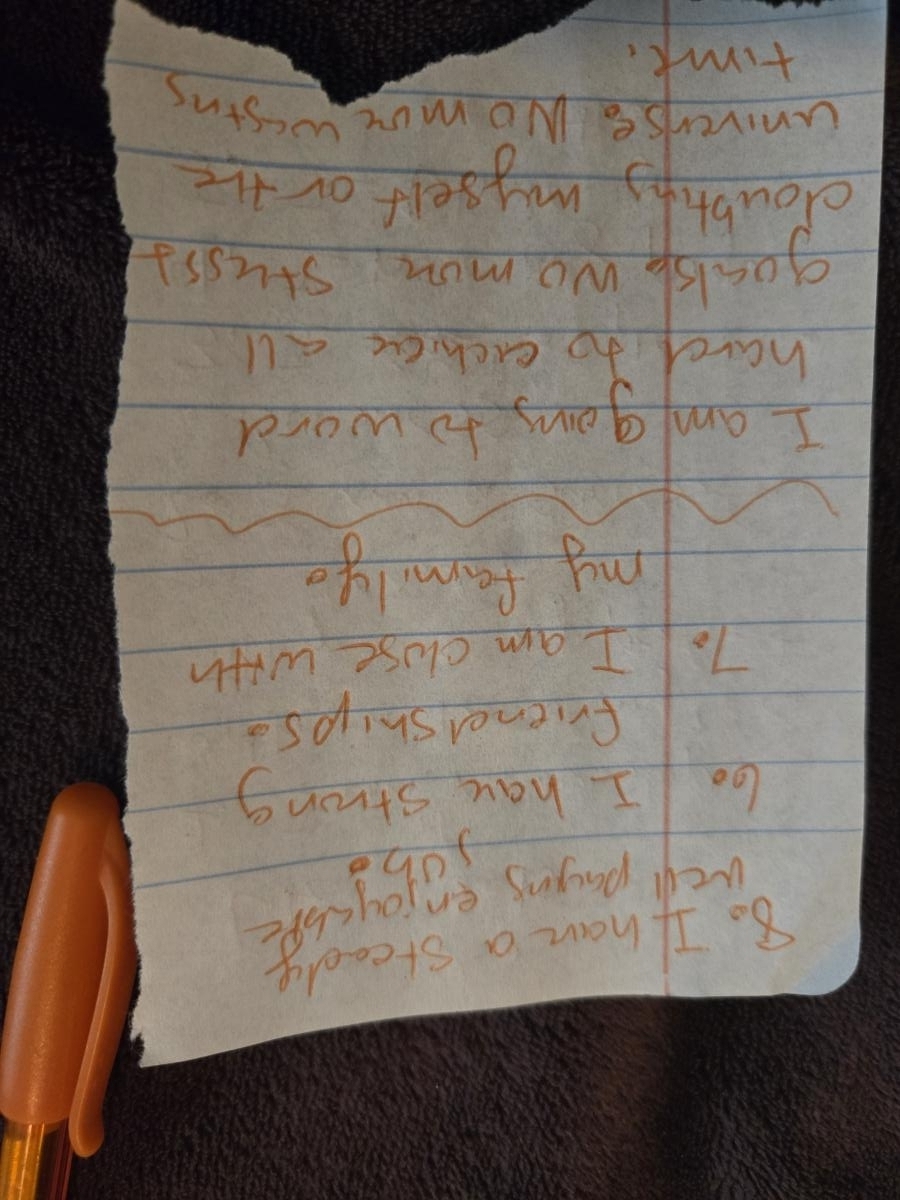 8. I have a steady
well paying enjoyable
job.
6. I have strong
friendships.
7. I am close with
my family.
I am going to word
hard to achieve all
goals. No more stress
doubting myself or the
universe. No more wasting
time.